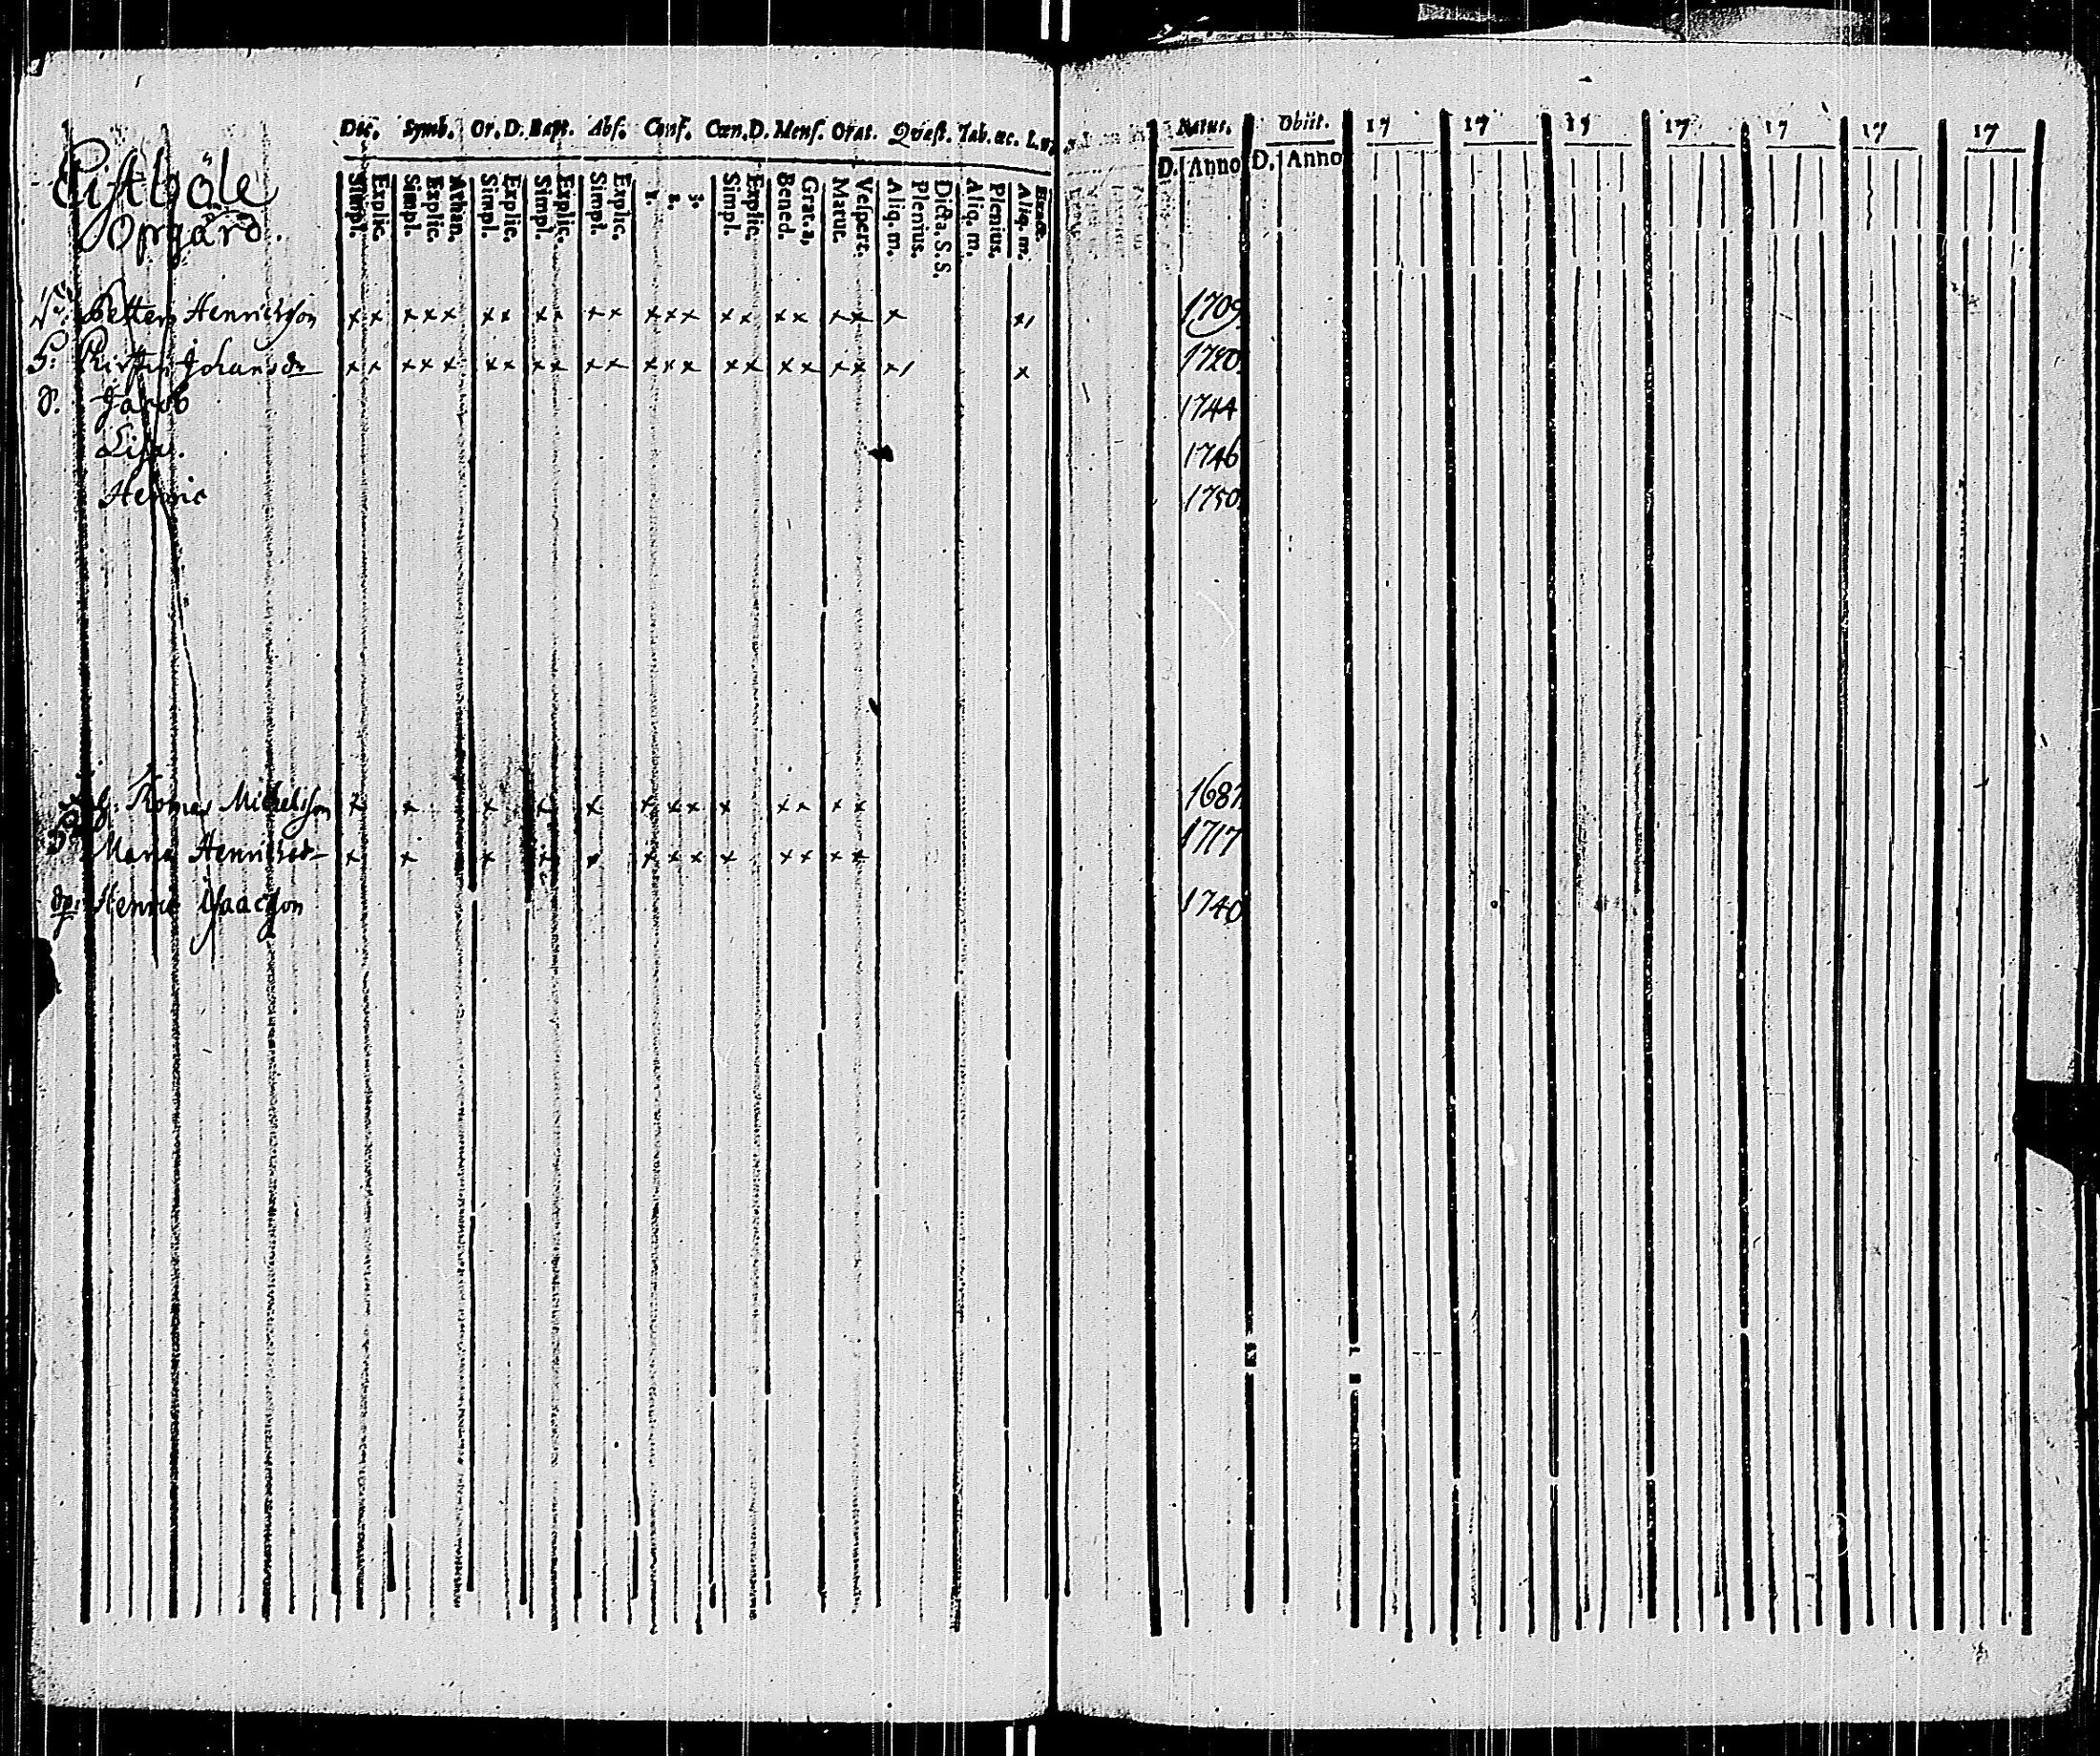 Dec. Symb. Or. D. Bapt. Abs. Conf. Cœn. D. Mens. Orat. Quæst. Tab. æc.
Natus. Obiit. 17 17 17 17 17 17 17
D. Anno D. Anno
Simpl. Explic. Simpl. Explic. Athan. Simpl. Explic. Simpl. Explic. Simpl. Explic. 1. 2. 3. Simpl. Explic. Bened. Grat. a, Matut. Vespert. Aliq. m. Plenius. Dicta, S. S. Aliq. m. Plenius. Aliq. m. Exacte.
böle
Opgård.
Petter Henricsson x x x x x x x x x x x x x x x x x x x x x 1709
Johansdr x x x x x x x x x x x x x x x x x x x x x 1720
Jacob 1744
Lisa. 1746
Henric 1750
Thomas Michelsson x x x x x x x x x x x x x 1687
Maria Henricsdr x x x x x x x x x x x x x 1717
Henric Isaacsson 1740